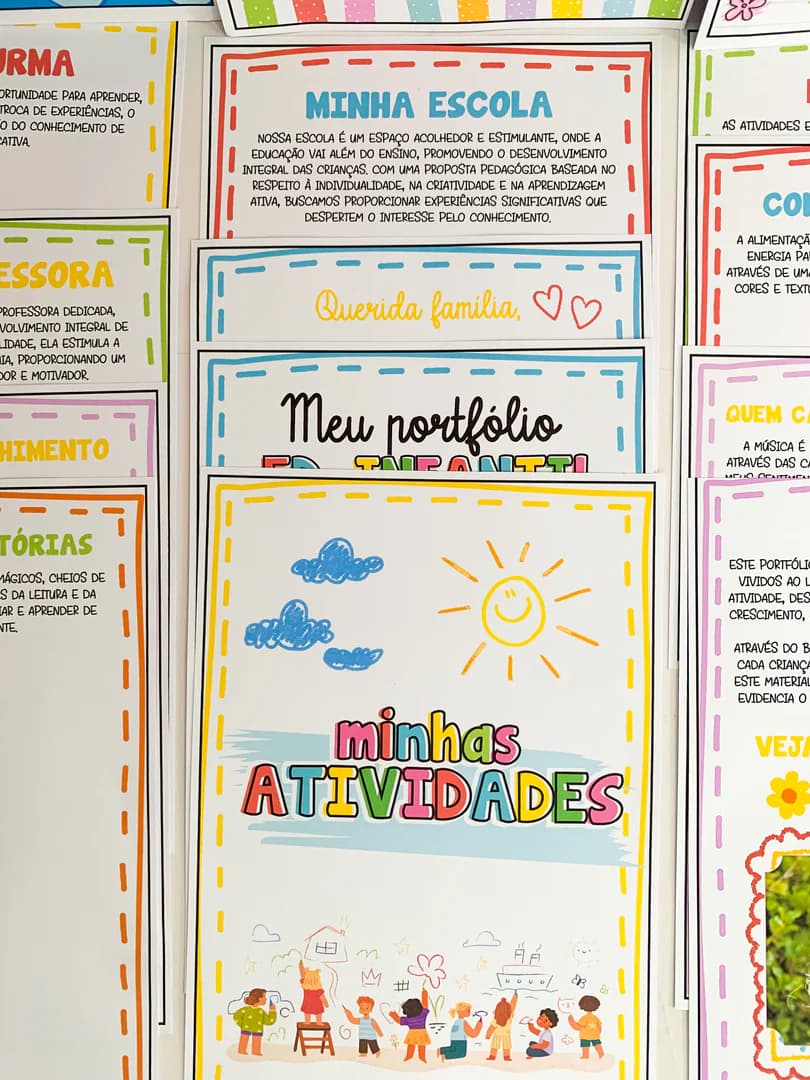 URMA
ORTUNIDADE PARA APRENDER,
TROCA DE EXPERIÊNCIAS, O
O DO CONHECIMENTO DE
CATIVA.
ESSORA
PROFESSORA DEDICADA,
VOLVIMENTO INTEGRAL DE
LIDADE, ELA ESTIMULA A
IA, PROPORCIONANDO UM
DOR E MOTIVADOR.
HIMENTO
TÓRIAS
MÁGICOS, CHEIOS DE
S DA LEITURA E DA
IAR E APRENDER DE
NTE.
MINHA ESCOLA
NOSSA ESCOLA É UM ESPAÇO ACOLHEDOR E ESTIMULANTE, ONDE A
EDUCAÇÃO VAI ALÉM DO ENSINO, PROMOVENDO O DESENVOLVIMENTO
INTEGRAL DAS CRIANÇAS. COM UMA PROPOSTA PEDAGÓGICA BASEADA NO
RESPEITO À INDIVIDUALIDADE, NA CRIATIVIDADE E NA APRENDIZAGEM
ATIVA, BUSCAMOS PROPORCIONAR EXPERIÊNCIAS SIGNIFICATIVAS QUE
DESPERTEM O INTERESSE PELO CONHECIMENTO.
Querida família,
Meu portfólio
ED. INFANTIL
minhas
ATIVIDADES
AS ATIVIDADES E
CO
A ALIMENTAÇÃ
ENERGIA PA
ATRAVÉS DE UMA
CORES E TEXTU
QUEM CA
A MÚSICA É
ATRAVÉS DAS CA
MEUS SENTIMEN
ESTE PORTFÓLIO
VIVIDOS AO L
ATIVIDADE, DES
CRESCIMENTO,
ATRAVÉS DO B
CADA CRIANÇA
ESTE MATERIAL
EVIDENCIA O
VEJA